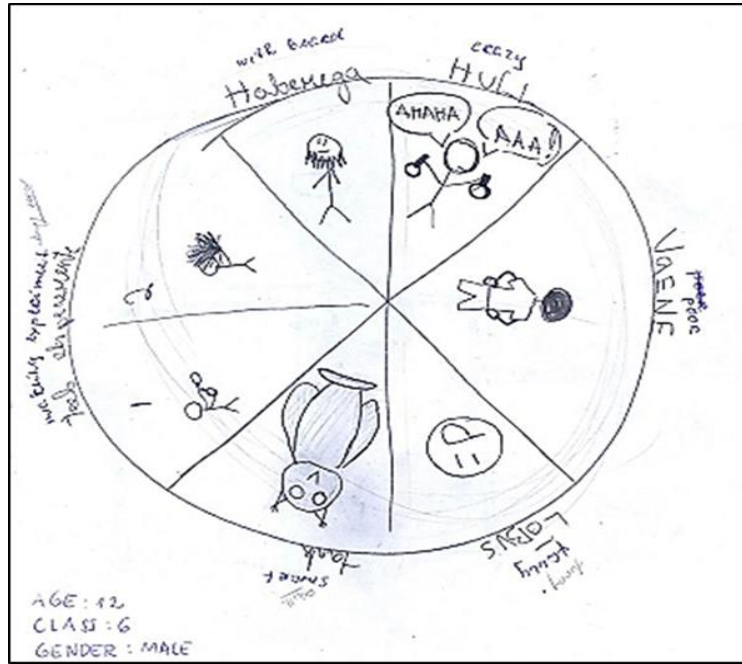 with beard
Habemega
crazy
HULL
AHAHA
AAA!
VaENE
poor
LOBUS
funny
tark
smart
making experiment
teeb eksperimente
AGE: 12
CLASS: 6
GENDER: MALE